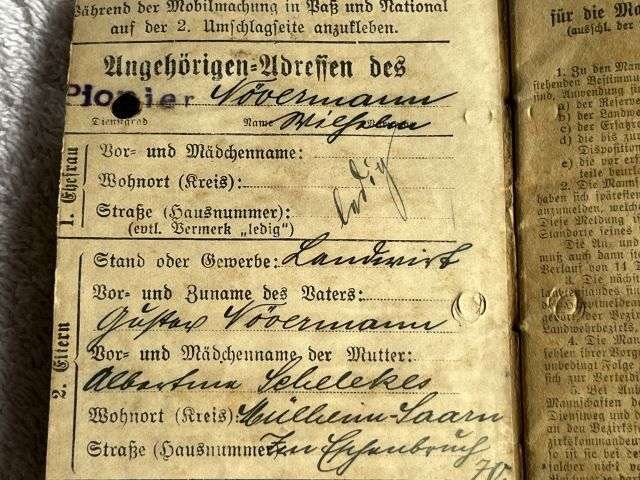 Während der Mobilmachung in Paß und National
auf der 2. Umschlagseite anzukleben.
Angehörigen-Adressen des
Pionier Növermann
Dienstgrad Name
Wilhelm
1. Ehefrau
Vor- und Mädchenname:
Wohnort (Kreis): ledig
Straße (Hausnummer):
(evtl. Vermerk „ledig")
2. Eltern
Stand oder Gewerbe: Landwirt
Vor- und Zuname des Vaters:
Gustav Növermann
Vor- und Mädchenname der Mutter:
Albertine
Wohnort (Kreis): Mülheim-Saarn
Straße (Hausnummer
70.
für die Ma
(ausschl. der
1. Zu den Man
stehenden Bestimm
und, Anwendung für
a) der Reserv
b) der Landw
c) der Ersatzr
d) die bis zu
Disposition
e) die vor e
teile beurl
2. Die Mann
haben sich spätesten
anzumelden, welche
Diese Meldung
Standorte seines
Die An- und
muß auch dann
Verlauf von 14
3. Die nächs
4. Die Mann
sehen ihrer Vorge
unbedingt Folge
sich zur Verteid
5. Bei An
Mannschaften de
Dienstweg und
an den Bezirksfe
zirkskommander
so ist sie bei de
solcher nicht vo